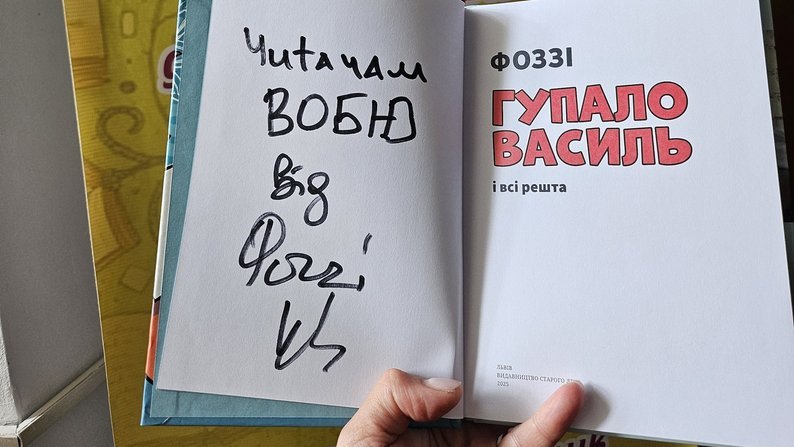 Читачам
ВОБЮ
від
Фоззі
ФОЗЗІ
ГУПАЛО
ВАСИЛЬ
і всі решта
ЛЬВІВ
ВИДАВНИЦТВО СТАРОГО
2025